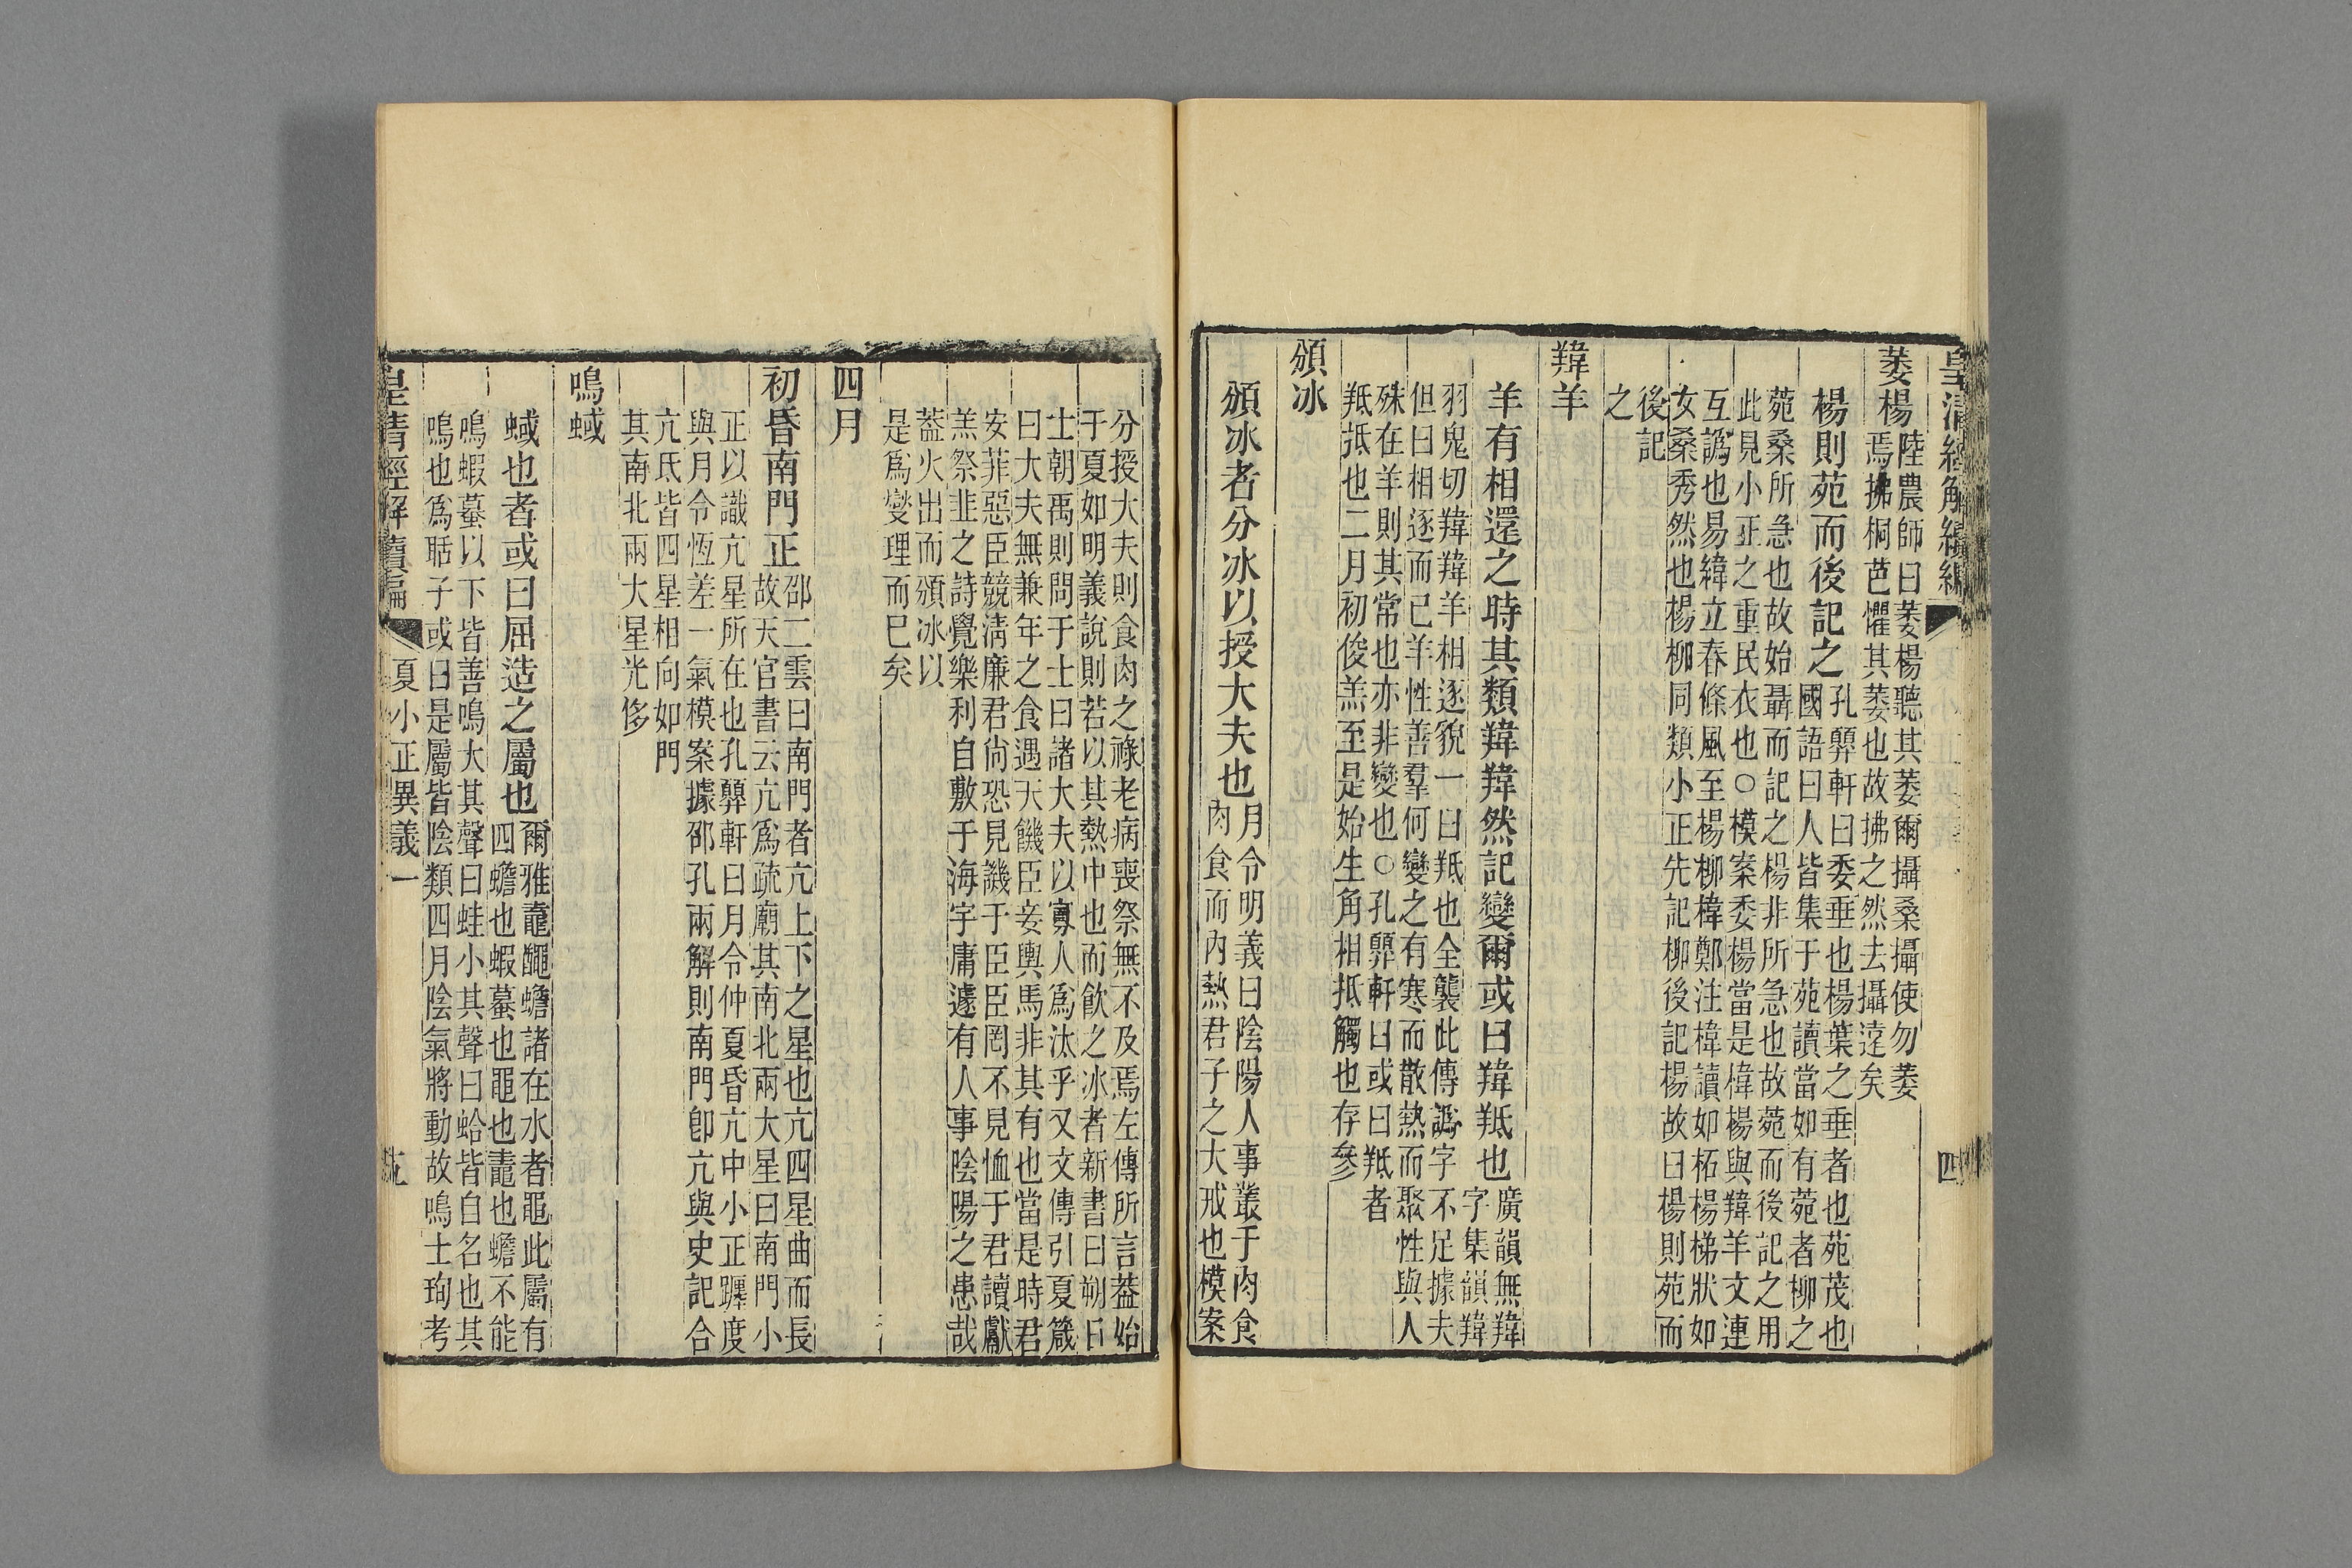 皇清經解續編
四
萎楊
陸農師曰萎楊聽其萎爾攝桑攝使勿萎
焉拂桐芭懼其萎也故拂之然去攝遠矣
楊則苑而後記之
孔顨軒曰委垂也楊葉之垂者也苑茂也
國語曰人皆集于苑讀當如有菀者柳之
菀桑所急也故始聶而記之楊非所急也故菀而後記之用
此見小正之重民衣也○模案委楊當是楎楊與羵羊文連
互譌也易緯立春條風至楊柳楎鄭注楎讀如柘楊梯狀如
女桑秀然也楊柳同類小正先記柳後記楊故曰楊則苑而
後記
之
羵羊
羊有相還之時其類羵羵然記變爾或曰羵羝也
廣韻無羵
字集韻羵
羽鬼切羵羵羊相逐貌一曰羝也全襲此傳譌字不足據夫
但曰相逐而已羊性善羣何變之有寒而散熱而聚性與人
殊在羊則其常也亦非變也○孔顨軒曰或曰羝者
羝抵也二月初俊羔至是始生角相抵觸也存參
頒冰
頒冰者分冰以授大夫也
月令明義曰陰陽人事叢于肉食
肉食而內熱君子之大戒也模案
分授大夫則食肉之祿老病喪祭無不及焉左傳所言葢始
于夏如明義說則若以其熱中也而飲之冰者新書曰朔日
士朝禹則問于士曰諸大夫以寡人爲汰乎又文傳引夏箴
曰大夫無兼年之食遇天饑臣妾輿馬非其有也當是時君
安菲惡臣競淸廉君尙恐見譏于臣臣罔不見恤于君讀獻
羔祭韭之詩覺樂利自敷于海宇庸遽有人事陰陽之患哉
葢火出而頒冰以
是爲燮理而已矣
四月
初昏南門正
邵二雲曰南門者亢上下之星也亢四星曲而長
故天官書云亢爲疏廟其南北兩大星曰南門小
正以識亢星所在也孔顨軒曰月令仲夏昏亢中小正躔度
與月令恆差一氣模案據邵孔兩解則南門卽亢與史記合
亢氐皆四星相向如門
其南北兩大星光侈
鳴蜮
蜮也者或曰屈造之屬也
爾雅鼁𪓰蟾諸在水者黽此屬有
四蟾也蝦蟇也黽也鼃也蟾不能
鳴蝦蟇以下皆善鳴大其聲曰蛙小其聲曰蛤皆自名也其
鳴也爲聒子或曰是屬皆陰類四月陰氣將動故鳴士珣考
皇清經解續編
夏小正異義一